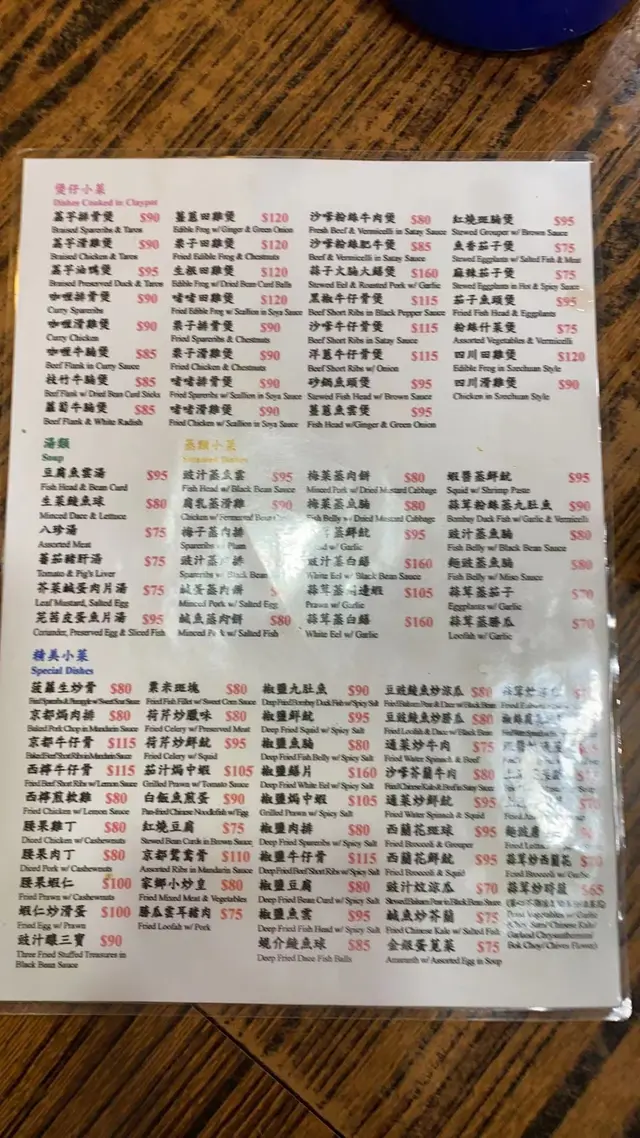 煲仔小菜
Dishes Cooked in Claypot
荔芋排骨煲 $90
Braised Spareribs & Taros
荔芋滑雞煲 $90
Braised Chicken & Taros
荔芋油鴨煲 $95
Braised Preserved Duck & Taros
咖喱排骨煲 $90
Curry Spareribs
咖喱滑雞煲 $90
Curry Chicken
咖喱牛腩煲 $85
Beef Flank in Curry Sauce
枝竹牛腩煲 $85
Beef Flank w/ Dried Bean Curd Sticks
蘿蔔牛腩煲 $85
Beef Flank & White Radish
薑蔥田雞煲 $120
Edible Frog w/ Ginger & Green Onion
栗子田雞煲 $120
Fried Edible Frog & Chestnuts
生根田雞煲 $120
Edible Frog w/ Dried Bean Curd Balls
啫啫田雞煲 $120
Fried Edible Frog w/ Scallion in Soya Sauce
栗子排骨煲 $90
Fried Spareribs & Chestnuts
栗子滑雞煲 $90
Fried Chicken & Chestnuts
啫啫排骨煲 $90
Fried Spareribs w/ Scallion in Soya Sauce
啫啫滑雞煲 $90
Fried Chicken w/ Scallion in Soya Sauce
沙嗲粉絲牛肉煲 $80
Fresh Beef & Vermicelli in Satay Sauce
沙嗲粉絲肥牛煲 $85
Beef & Vermicelli in Satay Sauce
蒜子火腩大鱔煲 $160
Stewed Eel & Roasted Pork w/ Garlic
黑椒牛仔骨煲 $115
Beef Short Ribs in Black Pepper Sauce
沙嗲牛仔骨煲 $115
Beef Short Ribs in Satay Sauce
洋蔥牛仔骨煲 $115
Beef Short Ribs w/ Onion
砂鍋魚頭煲 $95
Stewed Fish Head w/ Brown Sauce
薑蔥魚雲煲 $95
Fish Head w/Ginger & Green Onion
紅燒斑腩煲 $95
Stewed Grouper w/ Brown Sauce
魚香茄子煲 $75
Stewed Eggplants w/ Salted Fish & Meat
麻辣茄子煲 $75
Stewed Eggplants in Hot & Spicy Sauce
茄子魚頭煲 $95
Fried Fish Head & Eggplants
粉絲什菜煲 $75
Assorted Vegetables & Vermicelli
四川田雞煲 $120
Edible Frog in Szechuan Style
四川滑雞煲 $90
Chicken in Szechuan Style
湯類
Soup
豆腐魚雲湯 $95
Fish Head & Bean Curd
生菜鯪魚球 $80
Minced Dace & Lettuce
八珍湯 $75
Assorted Meat
蕃茄豬肝湯 $75
Tomato & Pig's Liver
芥菜鹹蛋肉片湯 $75
Leaf Mustard, Salted Egg
芫茜皮蛋魚片湯 $95
Coriander, Preserved Egg & Sliced Fish
蒸類小菜
豉汁蒸魚雲 $95
Fish Head w/ Black Bean Sauce
腐乳蒸滑雞 $90
Chicken w/ Fermented Bean
梅子蒸肉排
Spareribs w/ Plum
豉汁蒸肉排
Spareribs w/ Black Bean
鹹蛋蒸肉餅
Minced Pork w/ Salted Egg
鹹魚蒸肉餅 $80
Minced Pork w/ Salted Fish
梅菜蒸肉餅 $80
Minced Pork w/ Dried Mustard Cabbage
梅菜蒸魚腩 $80
Fish Belly w/ Dried Mustard Cabbage
蒸鮮魷 $95
w/ Garlic
豉汁蒸白鱔 $160
White Eel w/ Black Bean Sauce
蒜茸蒸開邊蝦 $105
Prawn w/ Garlic
蒜茸蒸白鱔 $160
White Eel w/ Garlic
蝦醬蒸鮮魷 $95
Squid w/ Shrimp Paste
蒜茸粉絲蒸九肚魚 $90
Bombay Duck Fish w/ Garlic & Vermicelli
豉汁蒸魚腩 $80
Fish Belly w/ Black Bean Sauce
麵豉蒸魚腩 $80
Fish Belly w/ Miso Sauce
蒜茸蒸茄子 $70
Eggplants w/ Garlic
蒜茸蒸勝瓜 $70
Loofah w/ Garlic
精美小菜
Special Dishes
菠蘿生炒骨 $80
京都焗肉排 $80
Baked Pork Chop in Mandarin Sauce
京都牛仔骨 $115
Baked Beef Short Ribs in Mandarin Sauce
西檸牛仔骨 $115
Fried Beef Short Ribs w/ Lemon Sauce
西檸煎軟雞 $80
Fried Chicken w/ Lemon Sauce
腰果雞丁 $80
Diced Chicken w/ Cashewnuts
腰果肉丁 $80
Diced Pork w/ Cashewnuts
腰果蝦仁 $100
Fried Prawn w/ Cashewnuts
蝦仁炒滑蛋 $100
Fried Egg w/ Prawn
豉汁釀三寶 $90
Three Fried Stuffed Treasures in
Black Bean Sauce
粟米斑塊 $80
Fried Fish Fillet w/ Sweet Corn Sauce
荷芹炒臘味 $80
Fried Celery w/ Preserved Meat
荷芹炒鮮魷 $95
Fried Celery w/ Squid
茄汁焗中蝦 $105
Grilled Prawn w/ Tomato Sauce
白飯魚煎蛋 $90
Pan-fried Chinese Noodlefish w/Egg
紅燒豆腐 $75
Stewed Bean Curds in Brown Sauce
京都鴛鴦骨 $110
Assorted Ribs in Mandarin Sauce
家鄉小炒皇 $80
Fried Mixed Meat & Vegetables
勝瓜雲耳豬肉 $75
Fried Loofah w/ Pork
椒鹽九肚魚 $90
Deep Fried Bombay Duck Fish w/ Spicy Salt
椒鹽鮮魷 $95
Deep Fried Squid w/ Spicy Salt
椒鹽魚腩 $80
Deep Fried Fish Belly w/ Spicy Salt
椒鹽鱔片 $160
Deep Fried White Eel w/ Spicy Salt
椒鹽焗中蝦 $105
Grilled Prawn w/ Spicy Salt
椒鹽肉排 $80
Deep Fried Spareribs w/ Spicy Salt
椒鹽牛仔骨 $115
Deep Fried Beef Short Ribs w/ Spicy Salt
椒鹽豆腐 $80
Deep Fried Bean Curd w/ Spicy Salt
椒鹽魚雲 $95
Deep Fried Fish Head w/ Spicy Salt
蜆介鯪魚球 $85
Deep Fried Dace Fish Balls
豆豉鯪魚炒涼瓜 $80
豆豉鯪魚炒勝瓜 $80
Fried Loofah & Dace w/ Black Bean
通菜炒牛肉 $75
Fried Water Spinach & Beef
沙嗲芥蘭牛肉 $80
Fried Chinese Kale & Beef in Satay Sauce
通菜炒鮮魷 $95
Fried Water Spinach & Squid
西蘭花斑球 $95
Fried Broccoli & Grouper
西蘭花鮮魷 $95
Fried Broccoli & Squid
豉汁炆涼瓜 $70
鹹魚炒芥蘭 $75
Fried Chinese Kale w/ Salted Fish
金銀蛋莧菜 $75
Amaranth w/ Assorted Egg in Soup
蒜茸炒西蘭花 $70
Fried Broccoli w/ Garlic
蒜茸炒時蔬 $65
Fried Vegetables w/ Garlic
(Choy Sum/ Chinese Kale/
Garland Chrysanthemum/
Bok Choy/ Chives Flower)